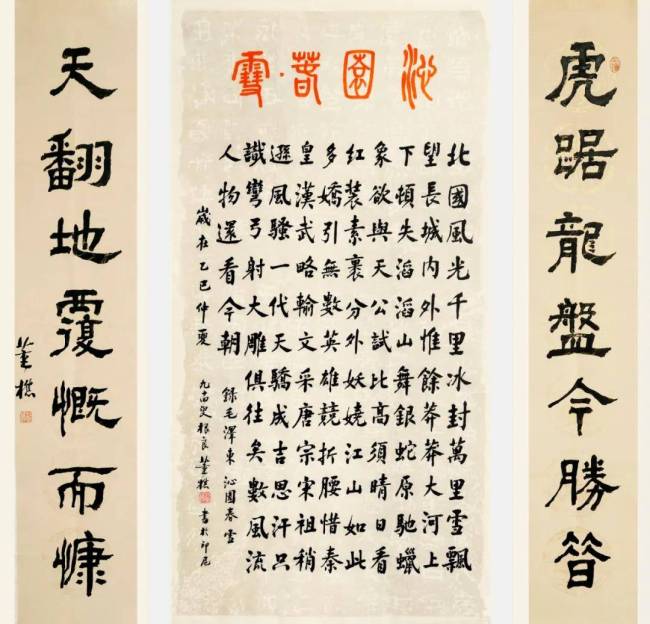 虎踞龍盤今勝昔
沁園春·雪
北國風光千里冰封萬里雪飄
望長城內外惟餘莽莽大河上
下頓失滔滔山舞銀蛇原馳蠟
象欲與天公試比高須晴日看
紅裝素裹分外妖嬈江山如此
多嬌引無數英雄競折腰惜秦
皇漢武略輸文采唐宗宋祖稍
遜風騷一代天驕成吉思汗只
識彎弓射大雕俱往矣數風流
人物還看今朝
錄毛澤東沁園春雪
歲在乙巳仲夏
叟根良董樵書於印尼
天翻地覆慨而慷
董樵